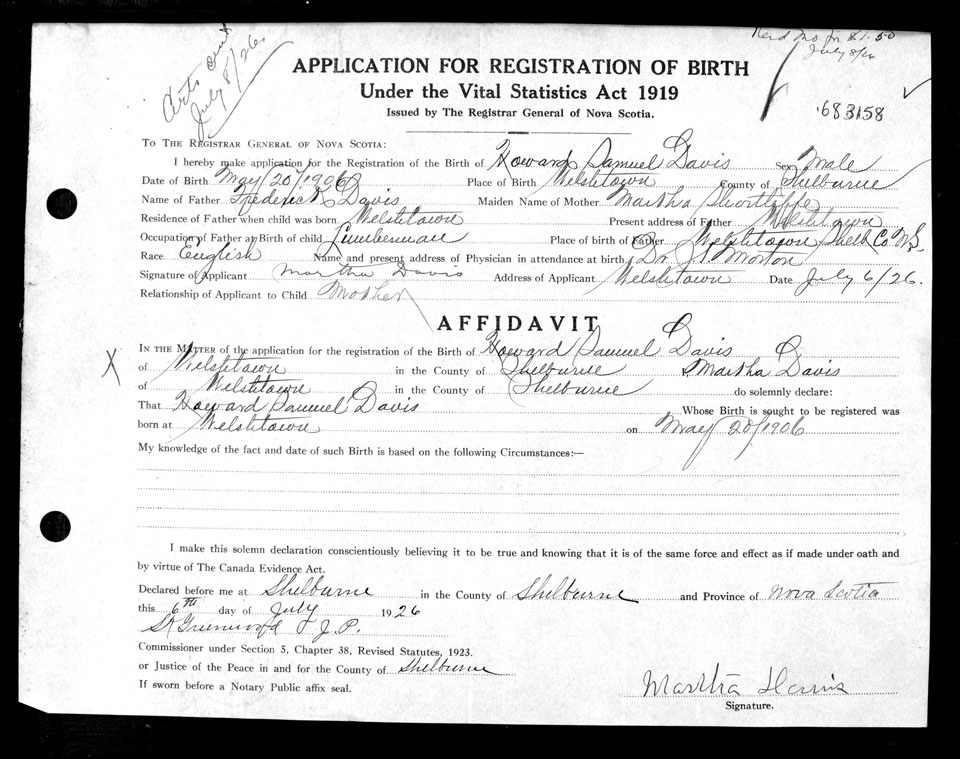 Certs sent
July 8/26
Recd Mo for $1.50
July 8/26
683158
APPLICATION FOR REGISTRATION OF BIRTH
Under the Vital Statistics Act 1919
Issued by The Registrar General of Nova Scotia.
TO THE REGISTRAR GENERAL OF NOVA SCOTIA:
I hereby make application for the Registration of the Birth of Howard Samuel Davis Sex Male
Date of Birth May 20/1906 Place of Birth Welshtown County of Shelburne
Name of Father Frederic Davis Maiden Name of Mother Martha
Residence of Father when child was born Welshtown Present address of Father Welshtown
Occupation of Father at Birth of child Lumberman Place of birth of Father Welshtown Shelb Co N.S.
Race English Name and present address of Physician in attendance at birth Dr Morton
Signature of Applicant Martha Davis Address of Applicant Welshtown Date July 6/26.
Relationship of Applicant to Child Mother
AFFIDAVIT
X
IN THE MATTER of the application for the registration of the Birth of Howard Samuel Davis
of Welshtown in the County of Shelburne Martha Davis
of Welshtown in the County of Shelburne do solemnly declare:
That Howard Samuel Davis Whose Birth is sought to be registered was
born at Welshtown on May 20/1906
My knowledge of the fact and date of such Birth is based on the following Circumstances:—
I make this solemn declaration conscientiously believing it to be true and knowing that it is of the same force and effect as if made under oath and
by virtue of The Canada Evidence Act.
Declared before me at Shelburne in the County of Shelburne and Province of Nova Scotia
this 6th day of July 1926
Greenwood J.P.
Commissioner under Section 5, Chapter 38, Revised Statutes, 1923.
or Justice of the Peace in and for the County of Shelburne
If sworn before a Notary Public affix seal.
Martha
Signature.